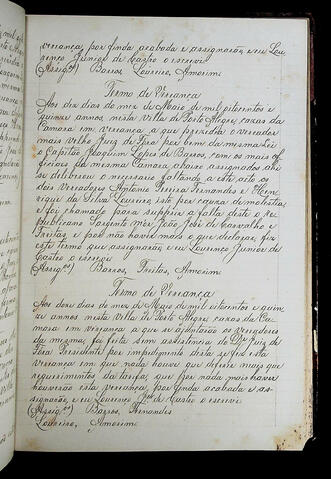 vereança por finda acabada e assignarão, e eu Lou-
renço Junior de Castro o escrevi
(Assigos) Barros, Loureiro, Amorim
Termo de Vereança
Aos dez dias do mez de Maio de mil oitocentos e
quinze annos, nesta villa de Porto Alegre, cazas da
Camara em vereança a que prezidio o vereador
mais velho Juiz de Fora por bem da mesma Lei
o Capitão Joaquim Lopes de Barros, com os mais of-
ficiaes da mesma Camara, abaixo assignados ahi
se deliberou o necessario faltando a este acto os
dois Vereadores Antonio Pereira Fernandes e Hen-
rique da Silva Loureiro, isto por cauza de molestia,
e foi chamado para supprir a falta deste o
Sargento Mór João José de Carvalho e
Freitas, e por não haver mais o que declarar, fiz
este termo que assignarão, e eu Lourenço Junior de
Castro o escrevi
(Assigos) Barros, Freitas, Amorim
Termo de Vereança
Aos doze dias do mez de Maio de mil oitocentos e quin-
ze annos nesta villa de Porto Alegre, cazas da Ca-
mara em vereança a que se ajuntarão os vereadores
da mesma, foi feita sem assistencia do Dr Juiz de
Fora Prezidente por impedimento desta se fez esta
vereança em que nada houve que deferir mais que
requerimentos da tarifa, que por nada mais haver
houverão esta vereança por finda acabada e as-
signarão, e eu Lourenço Jor de Castro o escrevi
(Assigos) Barros, Fernandes
Loureiro, Amorim